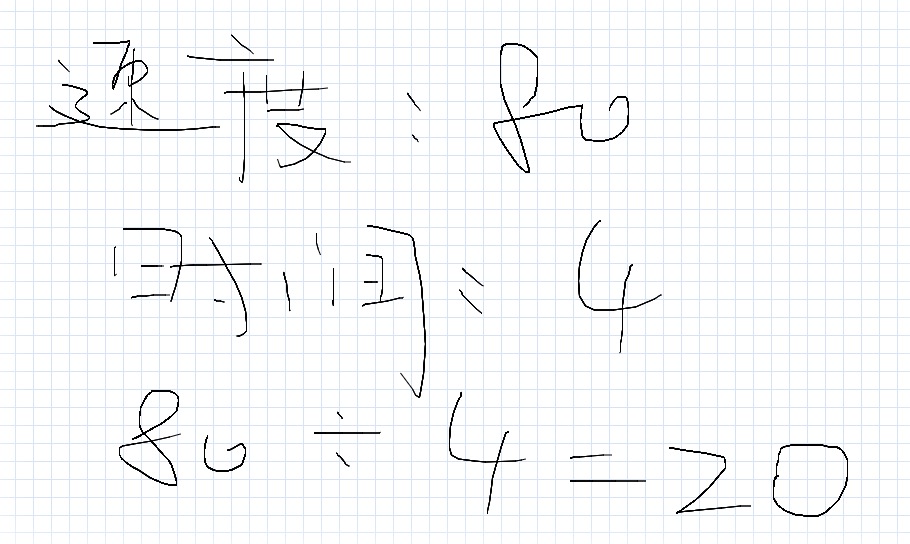 速度:80
时间:4
80÷4=20